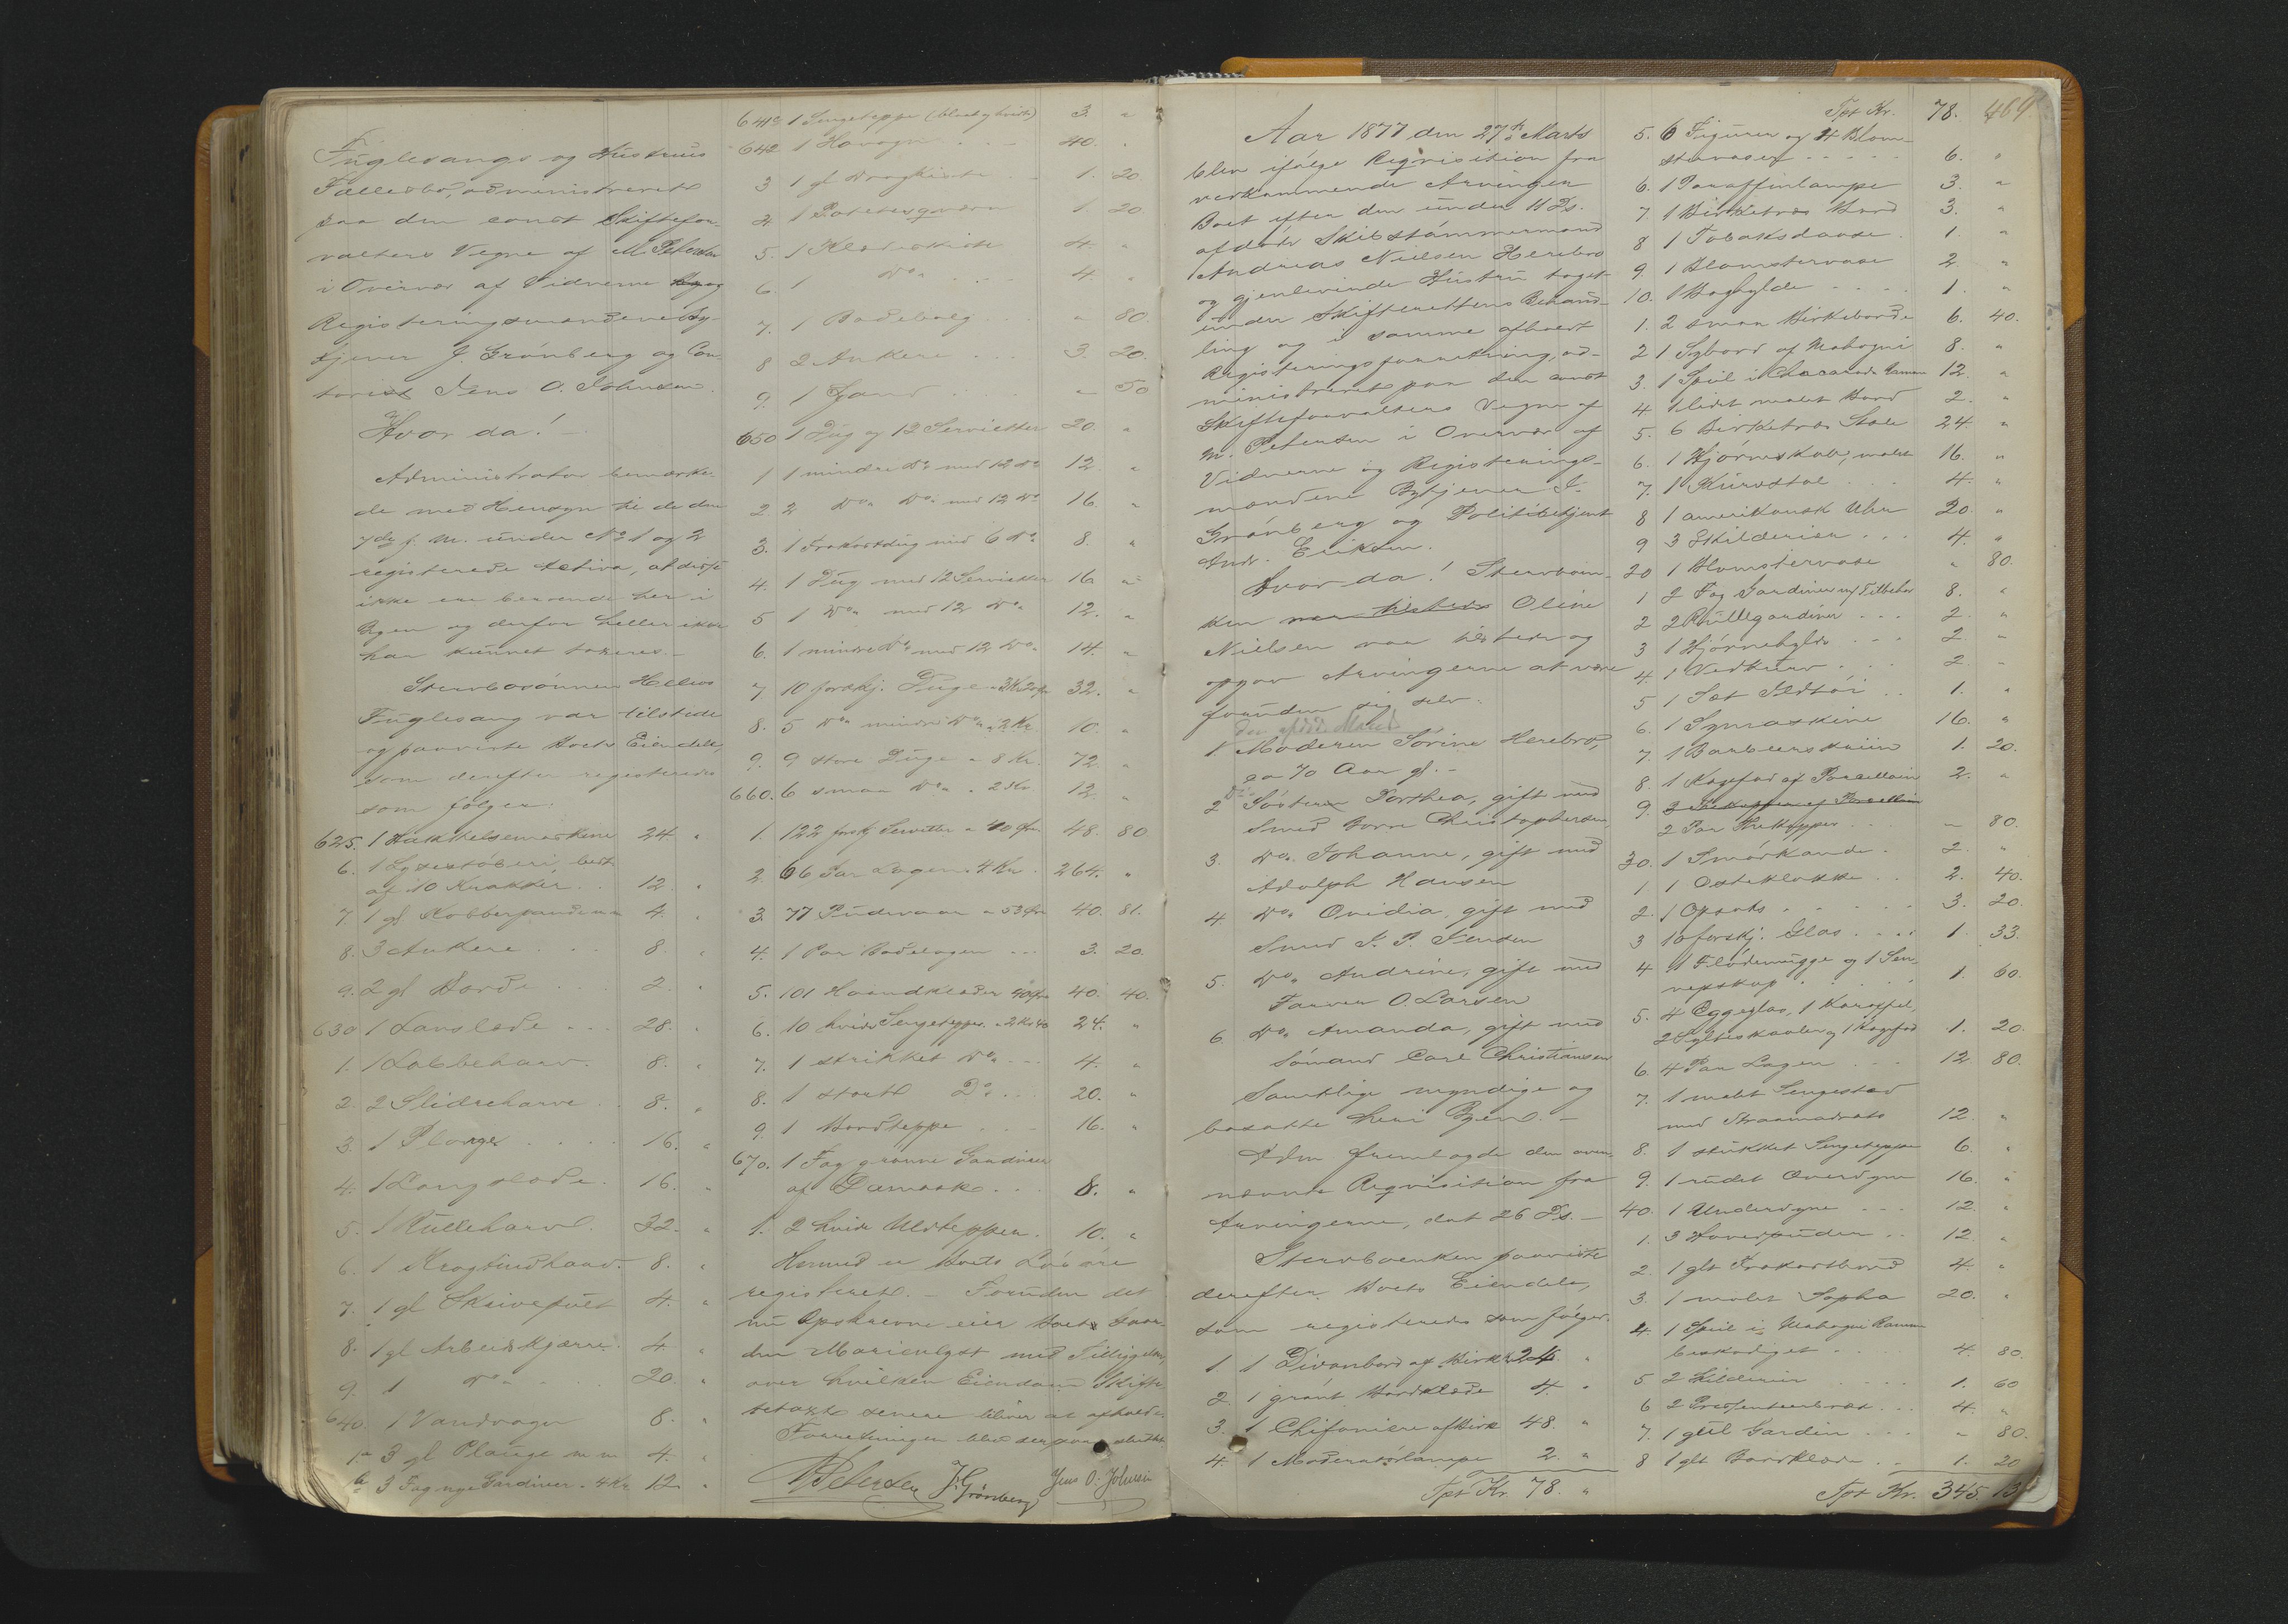 Fuglesangs og Hustrues
Fællesbo, administreret
paa den const Skiftefor-
valters Vegne af M. Petersen
i Overvær af Vidnerne og
Registeringsmændene By-
tjener J. Grönberg og Con-
torist Jens O. Johnsen.
Hvor da!
Administrator bemærke-
de med Hensyn til de den
7de f. M. under No 1 og 2
registerede Activa, at disse
ikke ere beroende her i
Byen og derfor heller ikke
har kunnet taxeres.-
Stervbosönnen Hellevs
Fuglesang var tilstede
og paaviste Boets Eiendele,
som derefter registeredes
som følger:
625. 1 Hakkelsemaskine 24. "
6. 1 Lysestöberi, best.
af 10 12. "
7. 1 gl Kobberpande 4. "
8. 3 Ankere 8. "
9. 2 gl Borde 2. "
630 1 Lavslæde 28. "
1. 1 Labbeharv. 8. "
2. 2 Slidreharve 8. "
3. 1 Plouge 16. "
4. 1 Langslæde. 16. "
5. 1 Rulleharv. 32. "
6. 1 8. "
7. 1 gl Skrivepult 4. "
8. 1 gl Arbeidskjærre 4 "
9. 1 Do. 20. "
640. 1 Vandvogn 8. "
1a 3 gl Plouge m m 4. "
b 3 Fag nye Gardiner à 4 Kr. 12 "
641c 1 Sengeteppe (blaat og hvidt) 3. "
642 1 Høvogn 40. "
3 1 gl Dragkiste 1. 20
4 1 Potetesqværn 1 20
5. 1 Klædeskiste 4. "
6. 1 Do. 4. "
7. 1 Badebalg " 80.
8 2 Ankere 3. 20.
9. 1 " 50
650 1 Dug og 12 Servietter 20. "
1 1 mindre Do med 12 Do 12. "
2. 2 Do. Do. med 12 Do 16. "
3. 1 Frokostdug med 6 Do 8. "
4. 1 Dug med 12 Servietter 16 "
5 1 Do. med 12 Do. 12. "
6. 1 mindre Do med 12 Do. 14. "
7 10 forskj. Duge à 3 Kr 20 Øre 32. "
8. 5 Do. mindre Do. à 2 Kr. 10. "
9. 9 store Duge à 8 Kr. 72. "
660. 6 smaa Do. à 2 Kr 12. "
1. 122 forskj Servietter à 40 Øre 48. 80
2. 66 Par Lagen à 4 Kr. 264. "
3. 77 Pudevaar à 53 Øre 40. 81.
4. 1 Par Badelagen 3. 20.
5. 101 Haandklæder à 40 Øre 40. 40.
6. 10 hvide Sengetepper à 2 Kr 40 24. "
7. 1 strikket Do. 4. "
8. 1 stort Do. 20. "
9. 1 Bordteppe 16. "
670. 1 Fag grønne Gardiner
af Damask 8. "
1. 2 hvide Uldtepper. 10. "
Hermed er Boets Løsøre
registeret.- Foruden det
nu Opskrevne eier Boet Gaar-
den Marienlyst med Tilliggelser,
over hvilken Eiendom Skifte-
taxt senere bliver at afholde.
Forretningen blev derpaa sluttet
M Petersen J. Grönberg Jens O. Johnsen
469.
Aar 1877 den 27de Marts
blev ifølge Reqvisition fra
vedkommende Arvinger
Boet efter den under 11 Ds.
afdøde Skibstömmermand
Andreas Nielsen Herebro
og gjenlevende Hustru taget
under Skifterettens Behand-
ling og i samme afholdt
Registeringsforretning, ad-
ministreret paa den const
Skifteforvalters Vegne af
M. Petersen i Overvær af
Vidnerne og Registerings-
mændene Bytjener J.
Grönberg og Politibetjent
Andr. Eriksen.
Hvor da! Stervboen-
ken var tilstede Oline
Nielsen var tilstede og
opgav Arvingerne at være
foruden sig selv.
Den afdøde Mands
1 Moderen Sörine Herebro,
ca 70 Aar gl.-
Do.
2 Søsteren Dorthea, gift med
Smed Borre Christophersen,
3. Do. Johanne, gift med
Adolph Hansen
4. Do. Ovidia, gift med
Smed J. P. Jensen
5. Do. Andrine, gift med
Farver O. Larsen
6. Do. Amanda, gift med
Sömand Carl Christiansen
Samtlige myndige og
bosatte her i Byen.-
Adm. fremlagde den oven-
nævnte Reqvisition fra
Arvingerne, dat. 26 Ds.-
Stervboenken paaviste
derefter Boets Eiendele,
som registeredes som følger.
1 1 Divanbord af Birk 24 "
2. 1 grønt Bordklæde 4. "
3. 1 Chifoniere af Birk 48 "
4. 1 Moderatørlampe 2. "
Tpt Kr. 78. "
Tpt Kr. 78.
5. 6 Figurer og 4 Blom-
stervaser 6. "
6. 1 Paraffinlampe 3. "
7. 1 Birketræs Bord 3. "
8 1 Tobaksdaase 1. "
9. 1 Blomstervase 2 "
10. 1 Boghylde 1. "
1. 2 smaa Birkeborde 6. 40.
2 1 Sybord af Mahogni 8. "
3. 1 Speil i Ramme 12. "
4 1 lidet malet Bord 2. "
5. 6 Birketræs Stole 24. "
6. 1 Hjørneskab, malet 16. "
7. 1 Kurvstol 4. "
8 1 amerikansk Uhr 20. "
9 3 Skilderier 4. "
20 1 Blomstervase " 80.
1 2 Fag Gardiner m/ Tilbehør 8. "
2 2 Rullegardiner 2. "
3 1 Hjørnehylde 2. "
4. 1 Vedkurv 2. "
5 1 Sæt Ildtøi 1. "
6. 1 Symaskine 16. "
7. 1 Barbeerskriin 1. 20.
8. 1 Kagefad af Porcellain 2. "
9. 3 Thekopper af Porcellain
2 Par Thekopper " 80.
30. 1 Smørkande 2. "
1. 1 Osteklokke 2. 40.
2. 1 Opsats 3. 20.
3 10 forskj. Glas 1. 33.
4 1 Flødemugge og 1 Sen-
nepskop 1. 60.
5. 4 Eggeglas, 1 Karaffel,
2 Sylteskaaler og 1 Kagefad 1. 20.
6. 4 Par Lagen 12 80.
7. 1 malet Sengested
med Straamadrats 12. "
8. 1 strikket Sengeteppe 6. "
9. 1 rudet Overdyne 16. "
40. 1 Underdyne 12. "
1. 3 Hovedpuder 12. "
2. 1 glt Frokostbord 4. "
3. 1 malet Sopha 20. "
4. 1 Speil i Mahogni Ramme
beskadiget 4. 80.
5 2 Skilderier 1. 60
6 2 Presenteerbræt 4. "
7. 1 gul Gardin " 80.
8 1 glt Bordklæde 1. 20
Tpt Kr. 345. 13